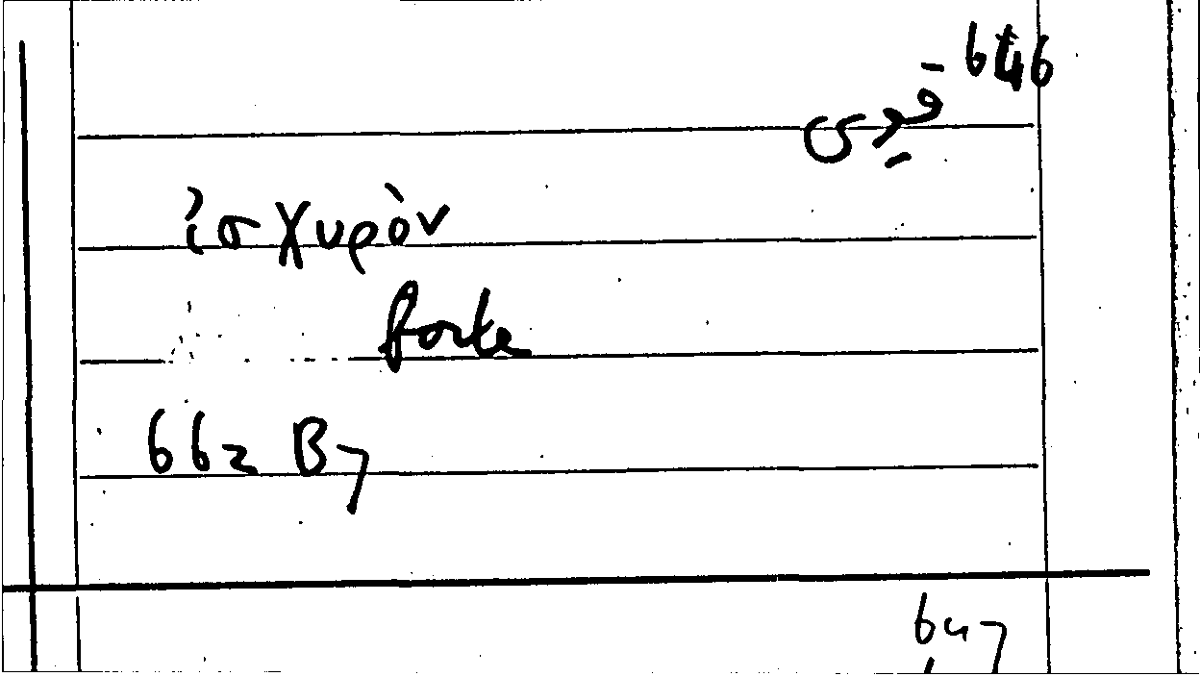 646
قوي
ἰσχυρὸν
forte
662 B7
647